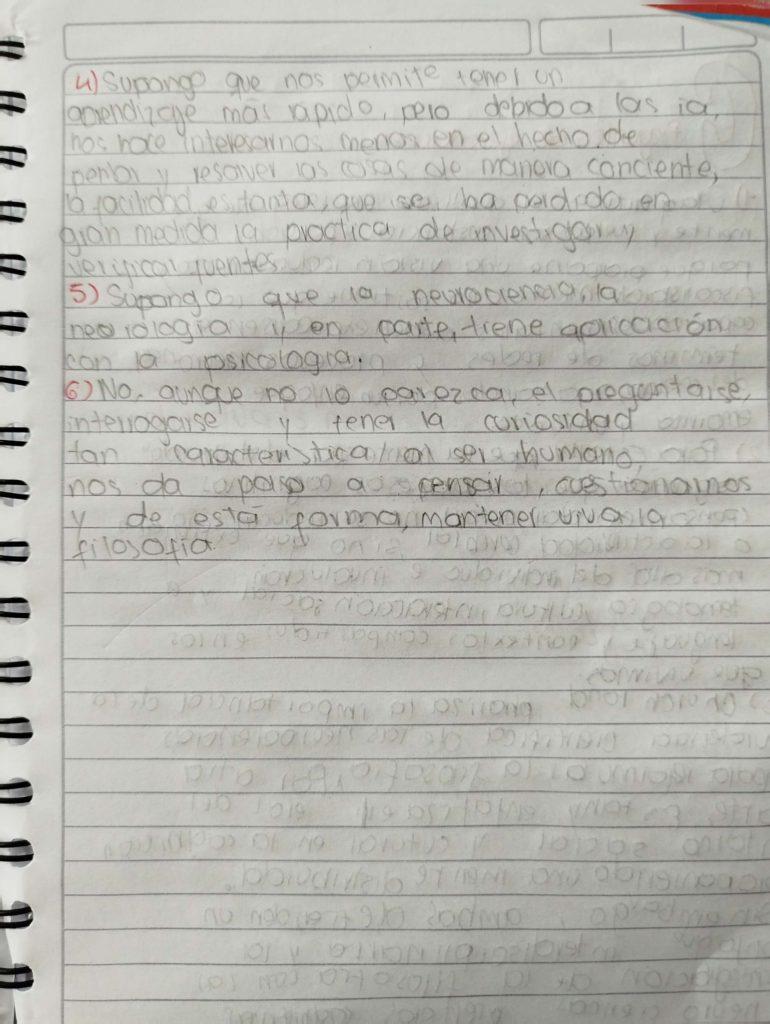 4) Supongo que nos permite tener un
aprendizaje más rápido, pero debido a las ia,
nos hace interesarnos menos en el hecho de
pensar y resolver las cosas de manera conciente,
la facilidad es tanta, que se ha perdido en
gran medida la practica de investigar y
verificar fuentes.
5) Supongo que la neurociencia, la
neorología y en parte, tiene aplicación
con la psicología.
6) No, aunque no lo parezca, el preguntarse,
interrogarse y tener la curiosidad
tan característica al ser humano,
nos da paso a pensar, cuestionarnos
y de está forma, mantener viva la
filosofía.